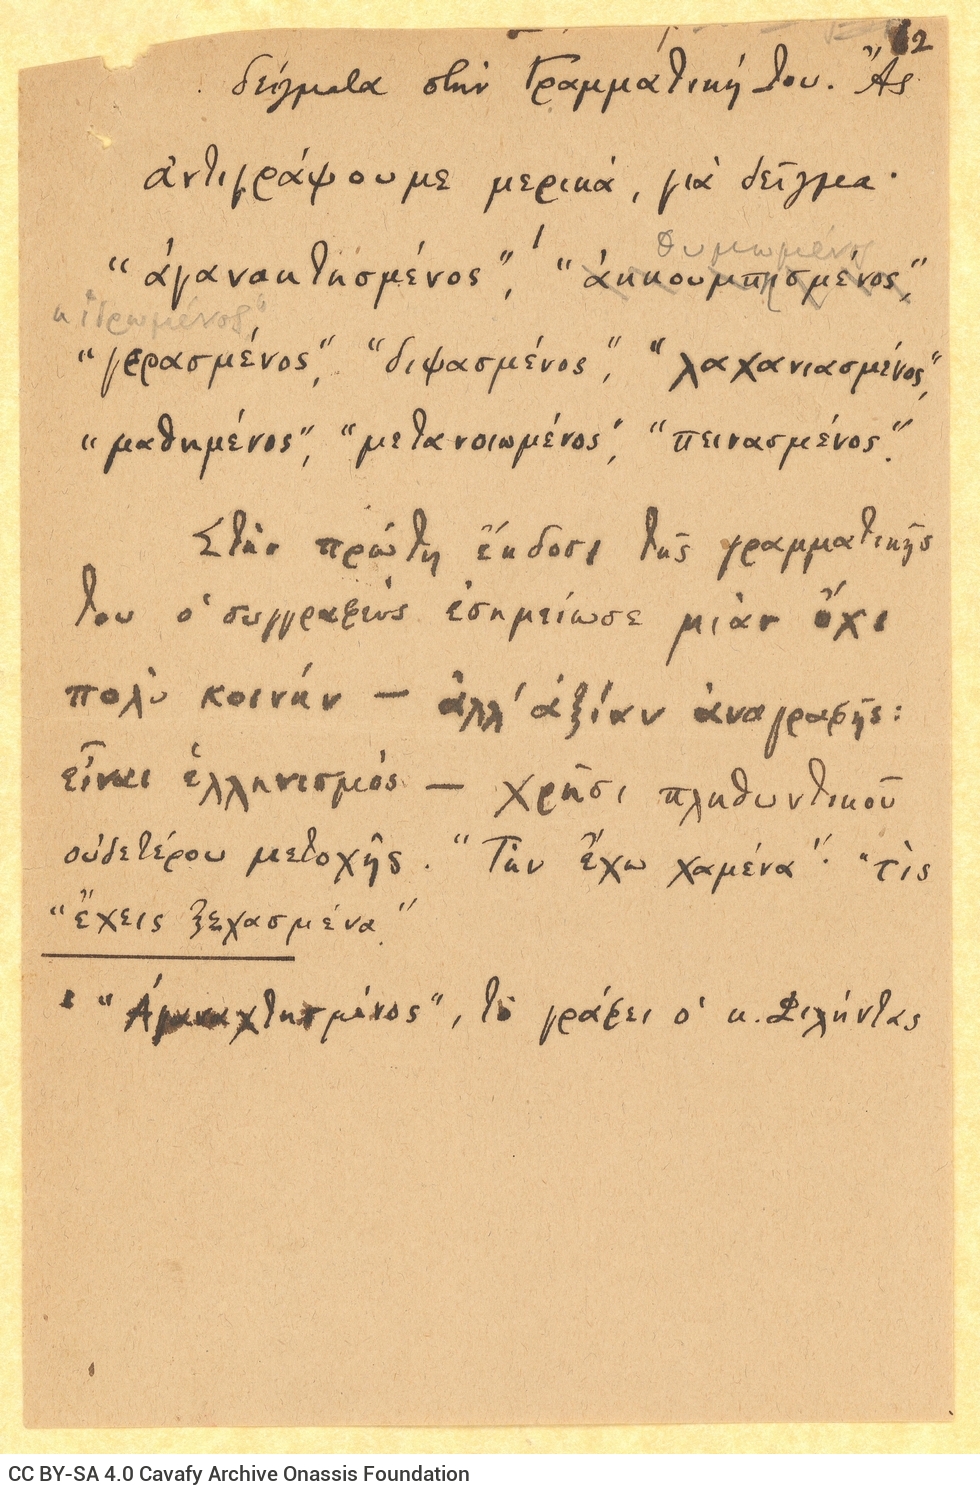 12
δείγματα στὴν Γραμματική του. Ἄς
ἀντιγράψουμε μερικά, γιὰ δεῖγμα·
θυμωμένος
“ἀγανακτησμένος”,¹ “ἀκκουμπησμένος,”
κ ἱδρωμένος”
“γερασμένος,” “διψασμένος”, “λαχανιασμένος”,
“μαθημένος”, “μετανοιωμένος”, “πεινασμένος”.
Στὴν πρώτη ἔκδοσι τῆς γραμματικῆς
του ὁ συγγραφεὺς ἐσημείωσε μιὰν ὄχι
πολὺ κοινήν — ἀλλ’ ἀξίαν ἀναγραφῆς:
εἶναι ἑλληνισμός — χρῆσι πληθυντικοῦ
οὐδετέρου μετοχῆς. “Τὴν ἔχω χαμένα”· “τὶς
“ἔχεις ξεχασμένα.”
¹ “Ἀγαναχτησμένος”, τὸ γράφει ὁ κ. Φιλήντας
CC BY-SA 4.0 Cavafy Archive Onassis Foundation